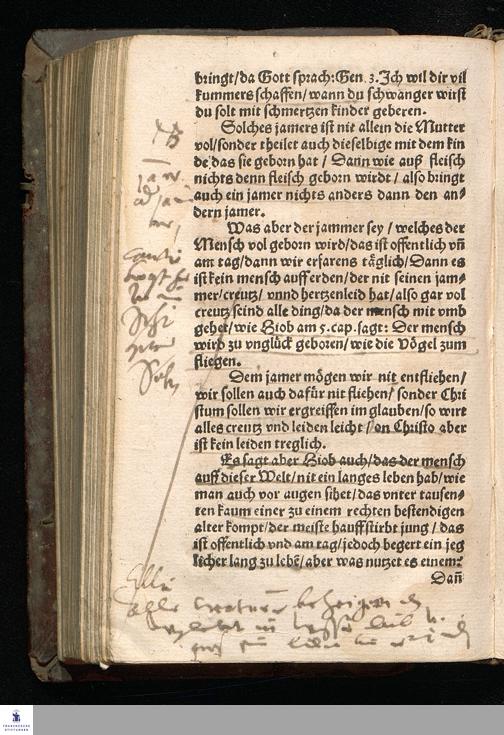 bringt/da Gott sprach:Gen. 3. Ich wil dir vil
kummers schaffen/wann du schwanger wirst
du solt mit schmertzen kinder geberen.
Solches jamers ist nit allein die Mutter
vol/sonder theilet auch dieselbige mit dem kin
de das sie geborn hat/Dann wie auß fleisch
nichts denn fleisch geborn wirdt/also bringt
auch ein jamer nichts anders dann den an-
dern jamer.
Was aber der jammer sey/welches der
Mensch vol geborn wird/das ist offentlich vñ
am tag/dann wir erfarens täglich/Dann es
ist kein mensch auff erden/der nit seinen jam-
mer/creutz/vnnd hertzenleid hat/also gar vol
creutz seind alle ding/da der mensch mit vmb
gehet/wie Hiob am 5.cap.sagt: Der mensch
wird zu vnglück geboren/wie die Vögel zum
fliegen.
Dem jamer mögen wir nit entfliehen/
wir sollen auch dafür nit fliehen/sonder Chri
stum sollen wir ergreiffen im glauben/so wirt
alles creutz vnd leiden leicht/on Christo aber
ist kein leiden treglich.
Es sagt aber Hiob auch/das der mensch
auff dieser Welt/nit ein langes leben hab/wie
man auch vor augen sihet/das vnter tausen-
ten kaum einer zu einem rechten bestendigen
alter kompt/der meiste hauff stirbt jung/das
ist offentlich vnd am tag/jedoch begert ein jeg
licher lang zu lebē/aber was nutzet es einem?
Dañ
NB
alle
FRANCKESCHE
STIFTUNGEN